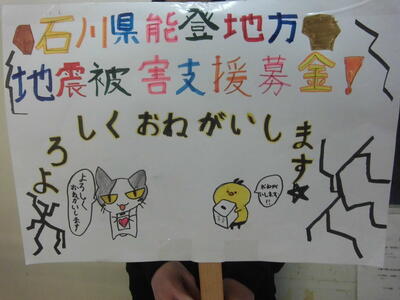 石川県能登地方
地震被害支援募金！
よろしくおねがいします
よろしくおねがいします
おねがいします!!